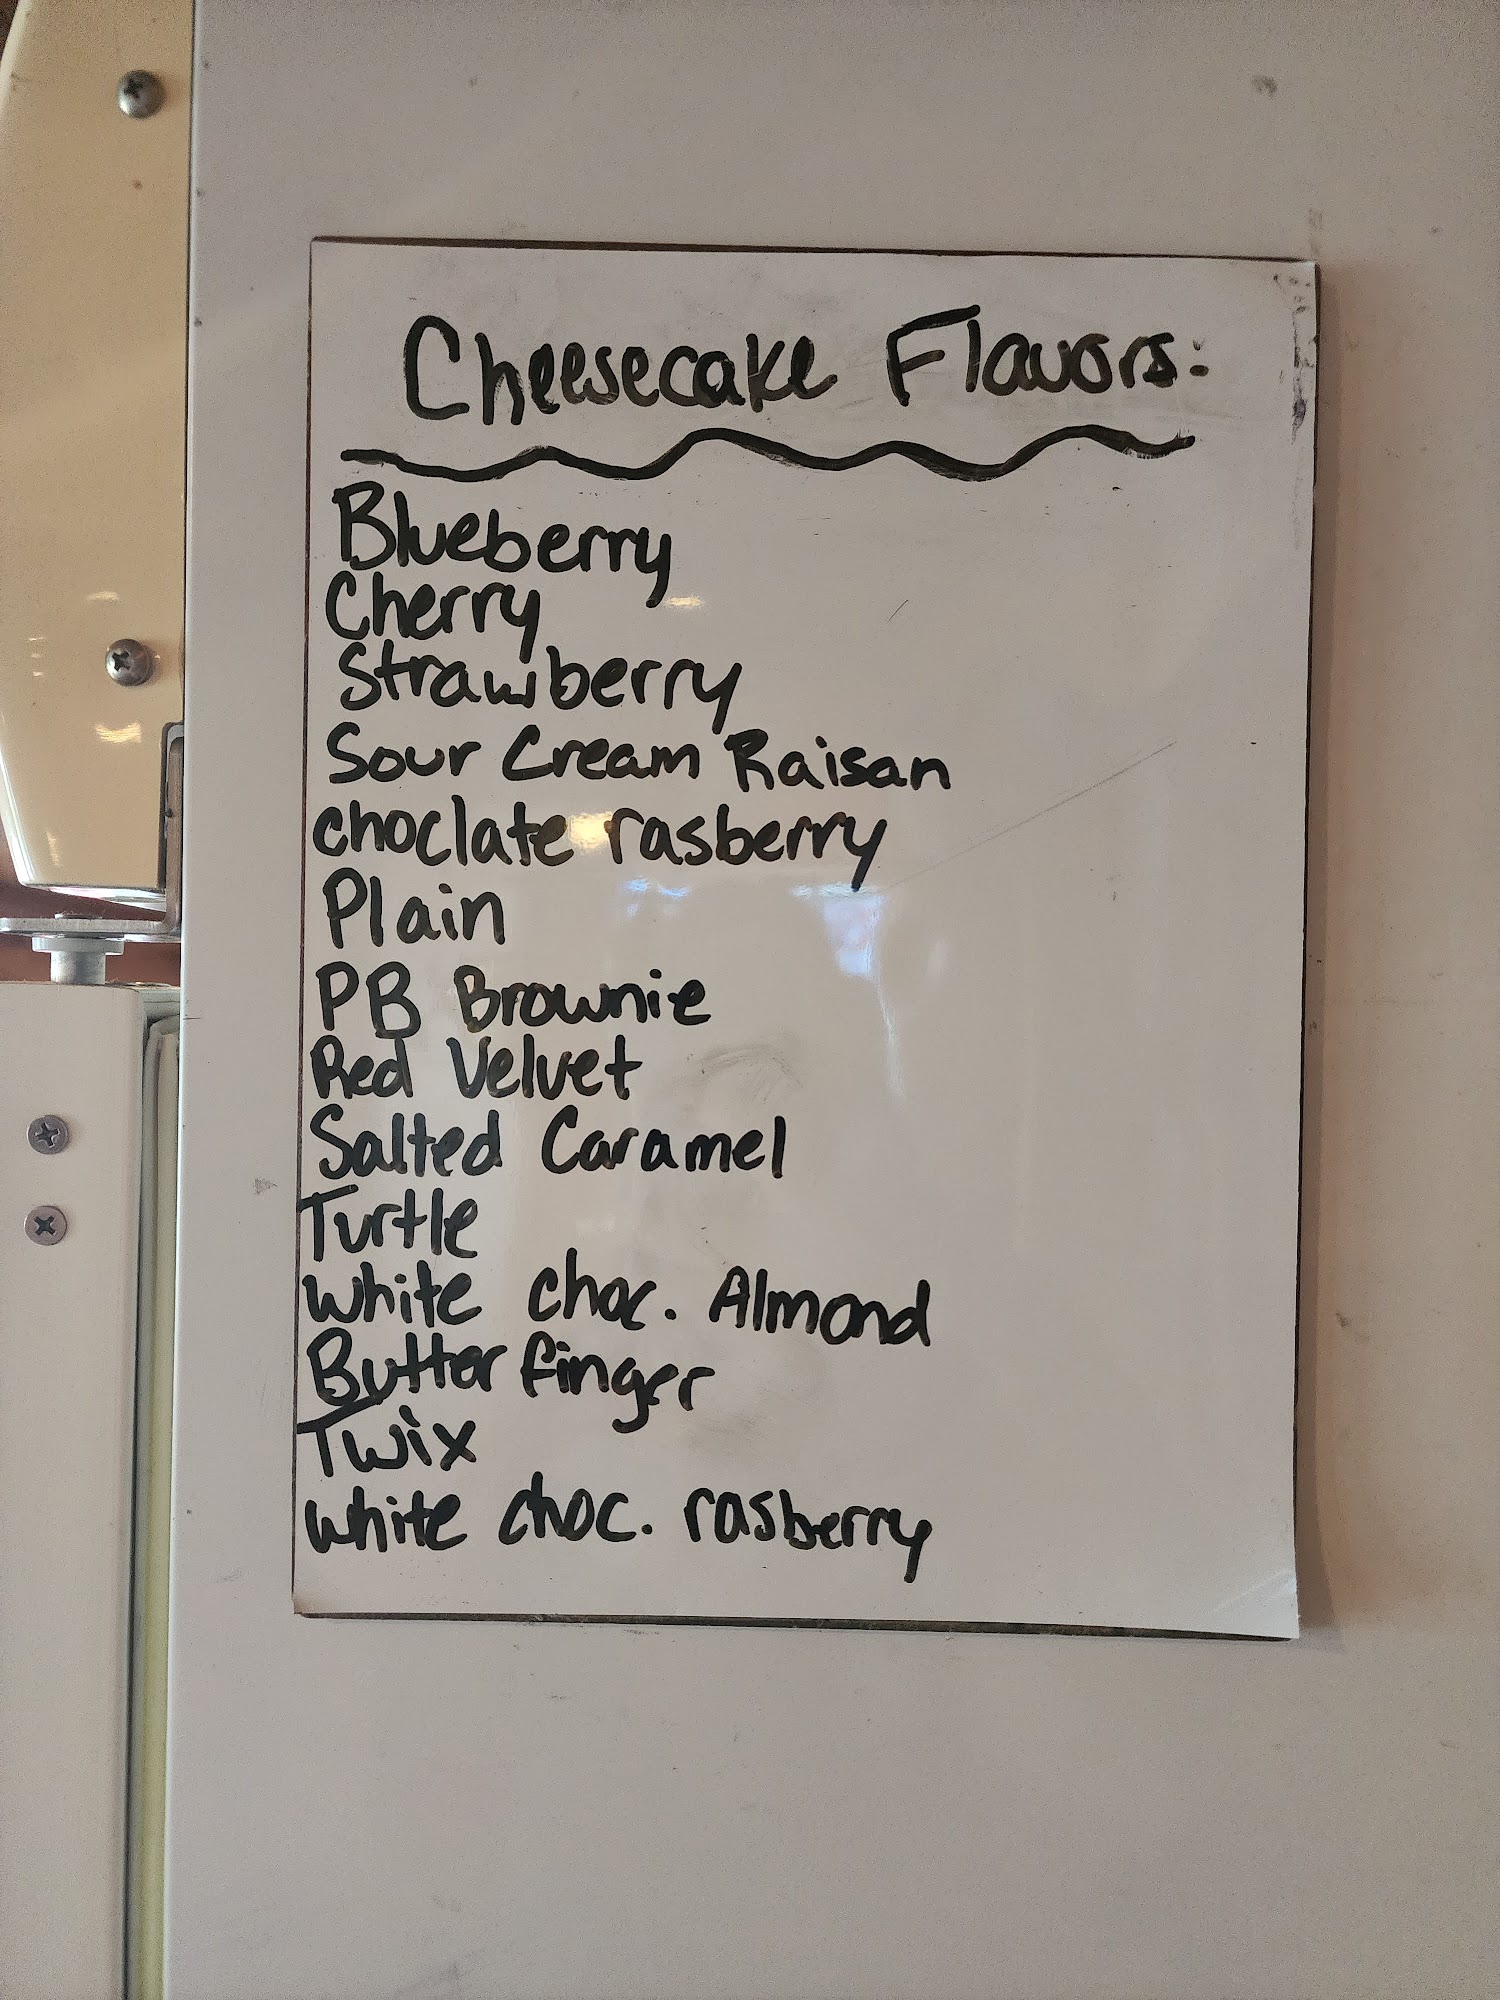 Cheesecake Flavors:
Blueberry
Cherry
Strawberry
Sour Cream Raisan
choclate rasberry
Plain
PB Brownie
Red Velvet
Salted Caramel
Turtle
white choc. Almond
Butter finger
Twix
white choc. rasberry